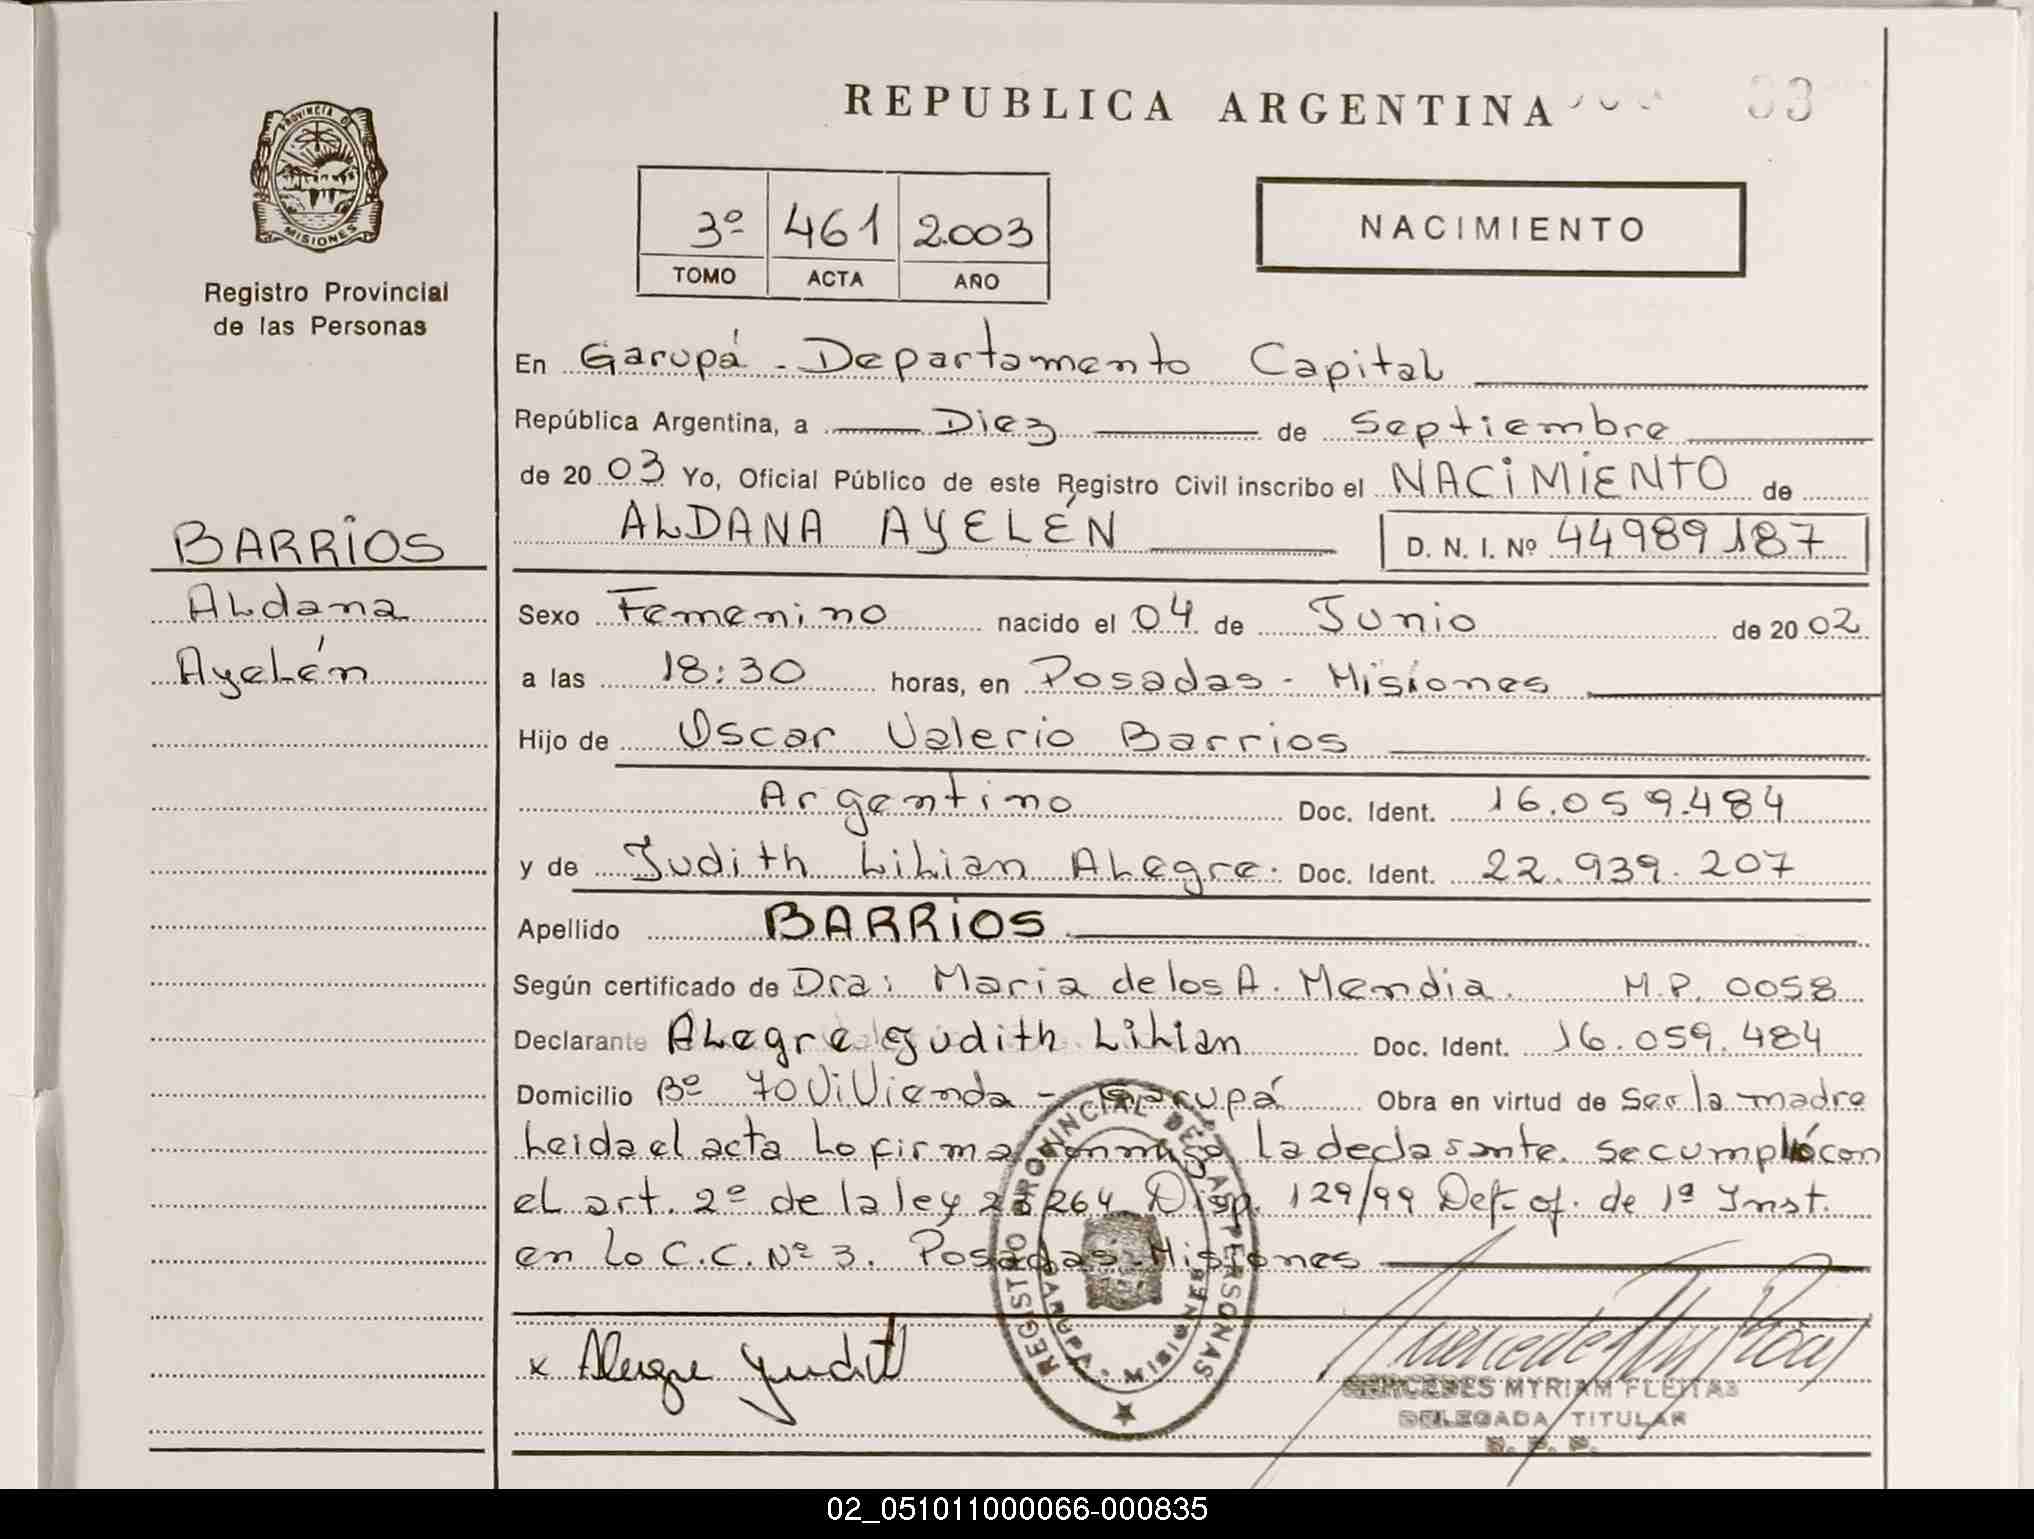 REPUBLICA ARGENTINA
33
PROVINCIA DE
MISIONES
Registro Provincial
de las Personas
3º 461 2.003
TOMO ACTA AÑO
NACIMIENTO
En Garupá - Departamento Capital
República Argentina, a Diez de Septiembre
de 2003 Yo, Oficial Público de este Registro Civil inscribo el NACIMIENTO de
ALDANA AYELÉN D. N. I. Nº 44989187
BARRIOS
Aldana
Ayelén
Sexo Femenino nacido el 04 de Junio de 2002
a las 18:30 horas, en Posadas - Misiones
Hijo de Oscar Valerio Barrios
Argentino Doc. Ident. 16.059.484
y de Judith Lilian Alegre. Doc. Ident. 22.939.207
Apellido BARRIOS.
Según certificado de Dra: Maria de los A. Mendia. M.P. 0058
Declarante Alegre Judith Lilian Doc. Ident. 16.059.484
Domicilio Bº 70 Vivienda - Garupá Obra en virtud de Ser la madre
Leida el acta lo firma conmigo la declarante. se cumplió con
el art. 2º de la ley 23264 Disp. 129/99 Def. of. de 1ª Inst.
en lo C.C. Nº 3. Posadas - Misiones
REGISTRO PROVINCIAL DE LAS PERSONAS
GARUPA - MISIONES
x Alegre Judith
MERCEDES MYRIAM FLEITAS
DELEGADA TITULAR
R. P. P.
02_051011000066-000835